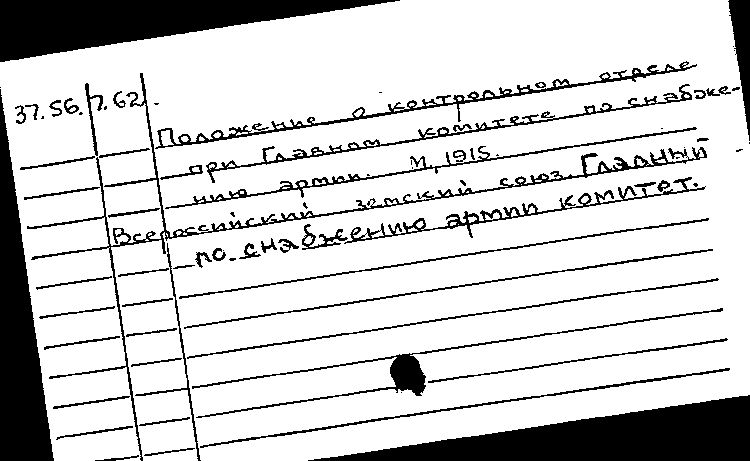 37.56.7.62.
Положение о контрольном отделе
при Главном комитете по снабже-
нию армии. М, 1915.
Всероссийский земский союз. Главный
по снабжению армии комитет.